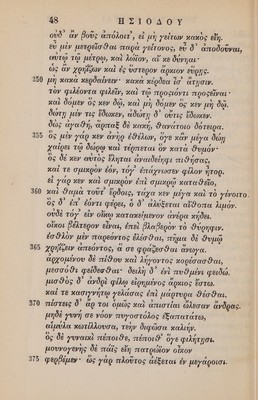 48 ΗΣΙΟΔΟΥ
οὐδ' ἂν βοῦς ἀπόλοιτ', εἰ μὴ γείτων κακὸς εἴη.
εὖ μὲν μετρεῖσθαι παρὰ γείτονος, εὖ δ' ἀποδοῦναι,
αὐτῷ τῷ μέτρῳ, καὶ λώϊον, αἴ κε δύνηαι·
ὡς ἂν χρηΐζων καὶ ἐς ὕστερον ἄρκιον εὕρῃς.
350 μὴ κακὰ κερδαίνειν· κακὰ κέρδεα ἶσ' ἄτῃσιν.
τὸν φιλέοντα φιλεῖν, καὶ τῷ προσιόντι προσεῖναι·
καὶ δόμεν ὅς κεν δῷ, καὶ μὴ δόμεν ὅς κεν μὴ δῷ.
δώτῃ μέν τις ἔδωκεν, ἀδώτῃ δ' οὔτις ἔδωκεν.
δὼς ἀγαθὴ, ἅρπαξ δὲ κακὴ, θανάτοιο δότειρα.
355 ὃς μὲν γάρ κεν ἀνὴρ ἐθέλων, ὅγε κἂν μέγα δώῃ
χαίρει τῷ δώρῳ καὶ τέρπεται ὃν κατὰ θυμόν·
ὃς δέ κεν αὐτὸς ἕληται ἀναιδείηφι πιθήσας,
καί τε σμικρὸν ἐὸν, τόγ' ἐπάχνωσεν φίλον ἦτορ.
εἰ γάρ κεν καὶ σμικρὸν ἐπὶ σμικρῷ καταθεῖο,
360 καὶ θαμὰ τοῦτ' ἔρδοις, τάχα κεν μέγα καὶ τὸ γένοιτο.
ὃς δ' ἐπ' ἐόντι φέρει, ὁ δ' ἀλύξεται αἴθοπα λιμόν.
οὐδὲ τόγ' εἰν οἴκῳ κατακείμενον ἀνέρα κήδει.
οἴκοι βέλτερον εἶναι, ἐπεὶ βλαβερὸν τὸ θύρηφιν.
ἐσθλὸν μὲν παρεόντος ἑλέσθαι, πῆμα δὲ θυμῷ
365 χρηΐζειν ἀπεόντος, ἅ σε φράζεσθαι ἄνωγα.
ἀρχομένου δὲ πίθου καὶ λήγοντος κορέσασθαι,
μεσσόθι φείδεσθαι· δειλὴ δ' ἐνὶ πυθμένι φειδώ.
μισθὸς δ' ἀνδρὶ φίλῳ εἰρημένος ἄρκιος ἔστω.
καί τε κασιγνήτῳ γελάσας ἐπὶ μάρτυρα θέσθαι.
370 πίστεις δ' ἄρ τοι ὁμῶς καὶ ἀπιστίαι ὤλεσαν ἄνδρας.
μηδὲ γυνή σε νόον πυγοστόλος ἐξαπατάτω,
αἱμύλα κωτίλλουσα, τεὴν διφῶσα καλιήν.
ὃς δὲ γυναικὶ πέποιθε, πέποιθ' ὅγε φιλήτῃσι.
μουνογενὴς δὲ πάϊς εἴη πατρώϊον οἶκον
375 φερβέμεν· ὣς γὰρ πλοῦτος ἀέξεται ἐν μεγάροισι.